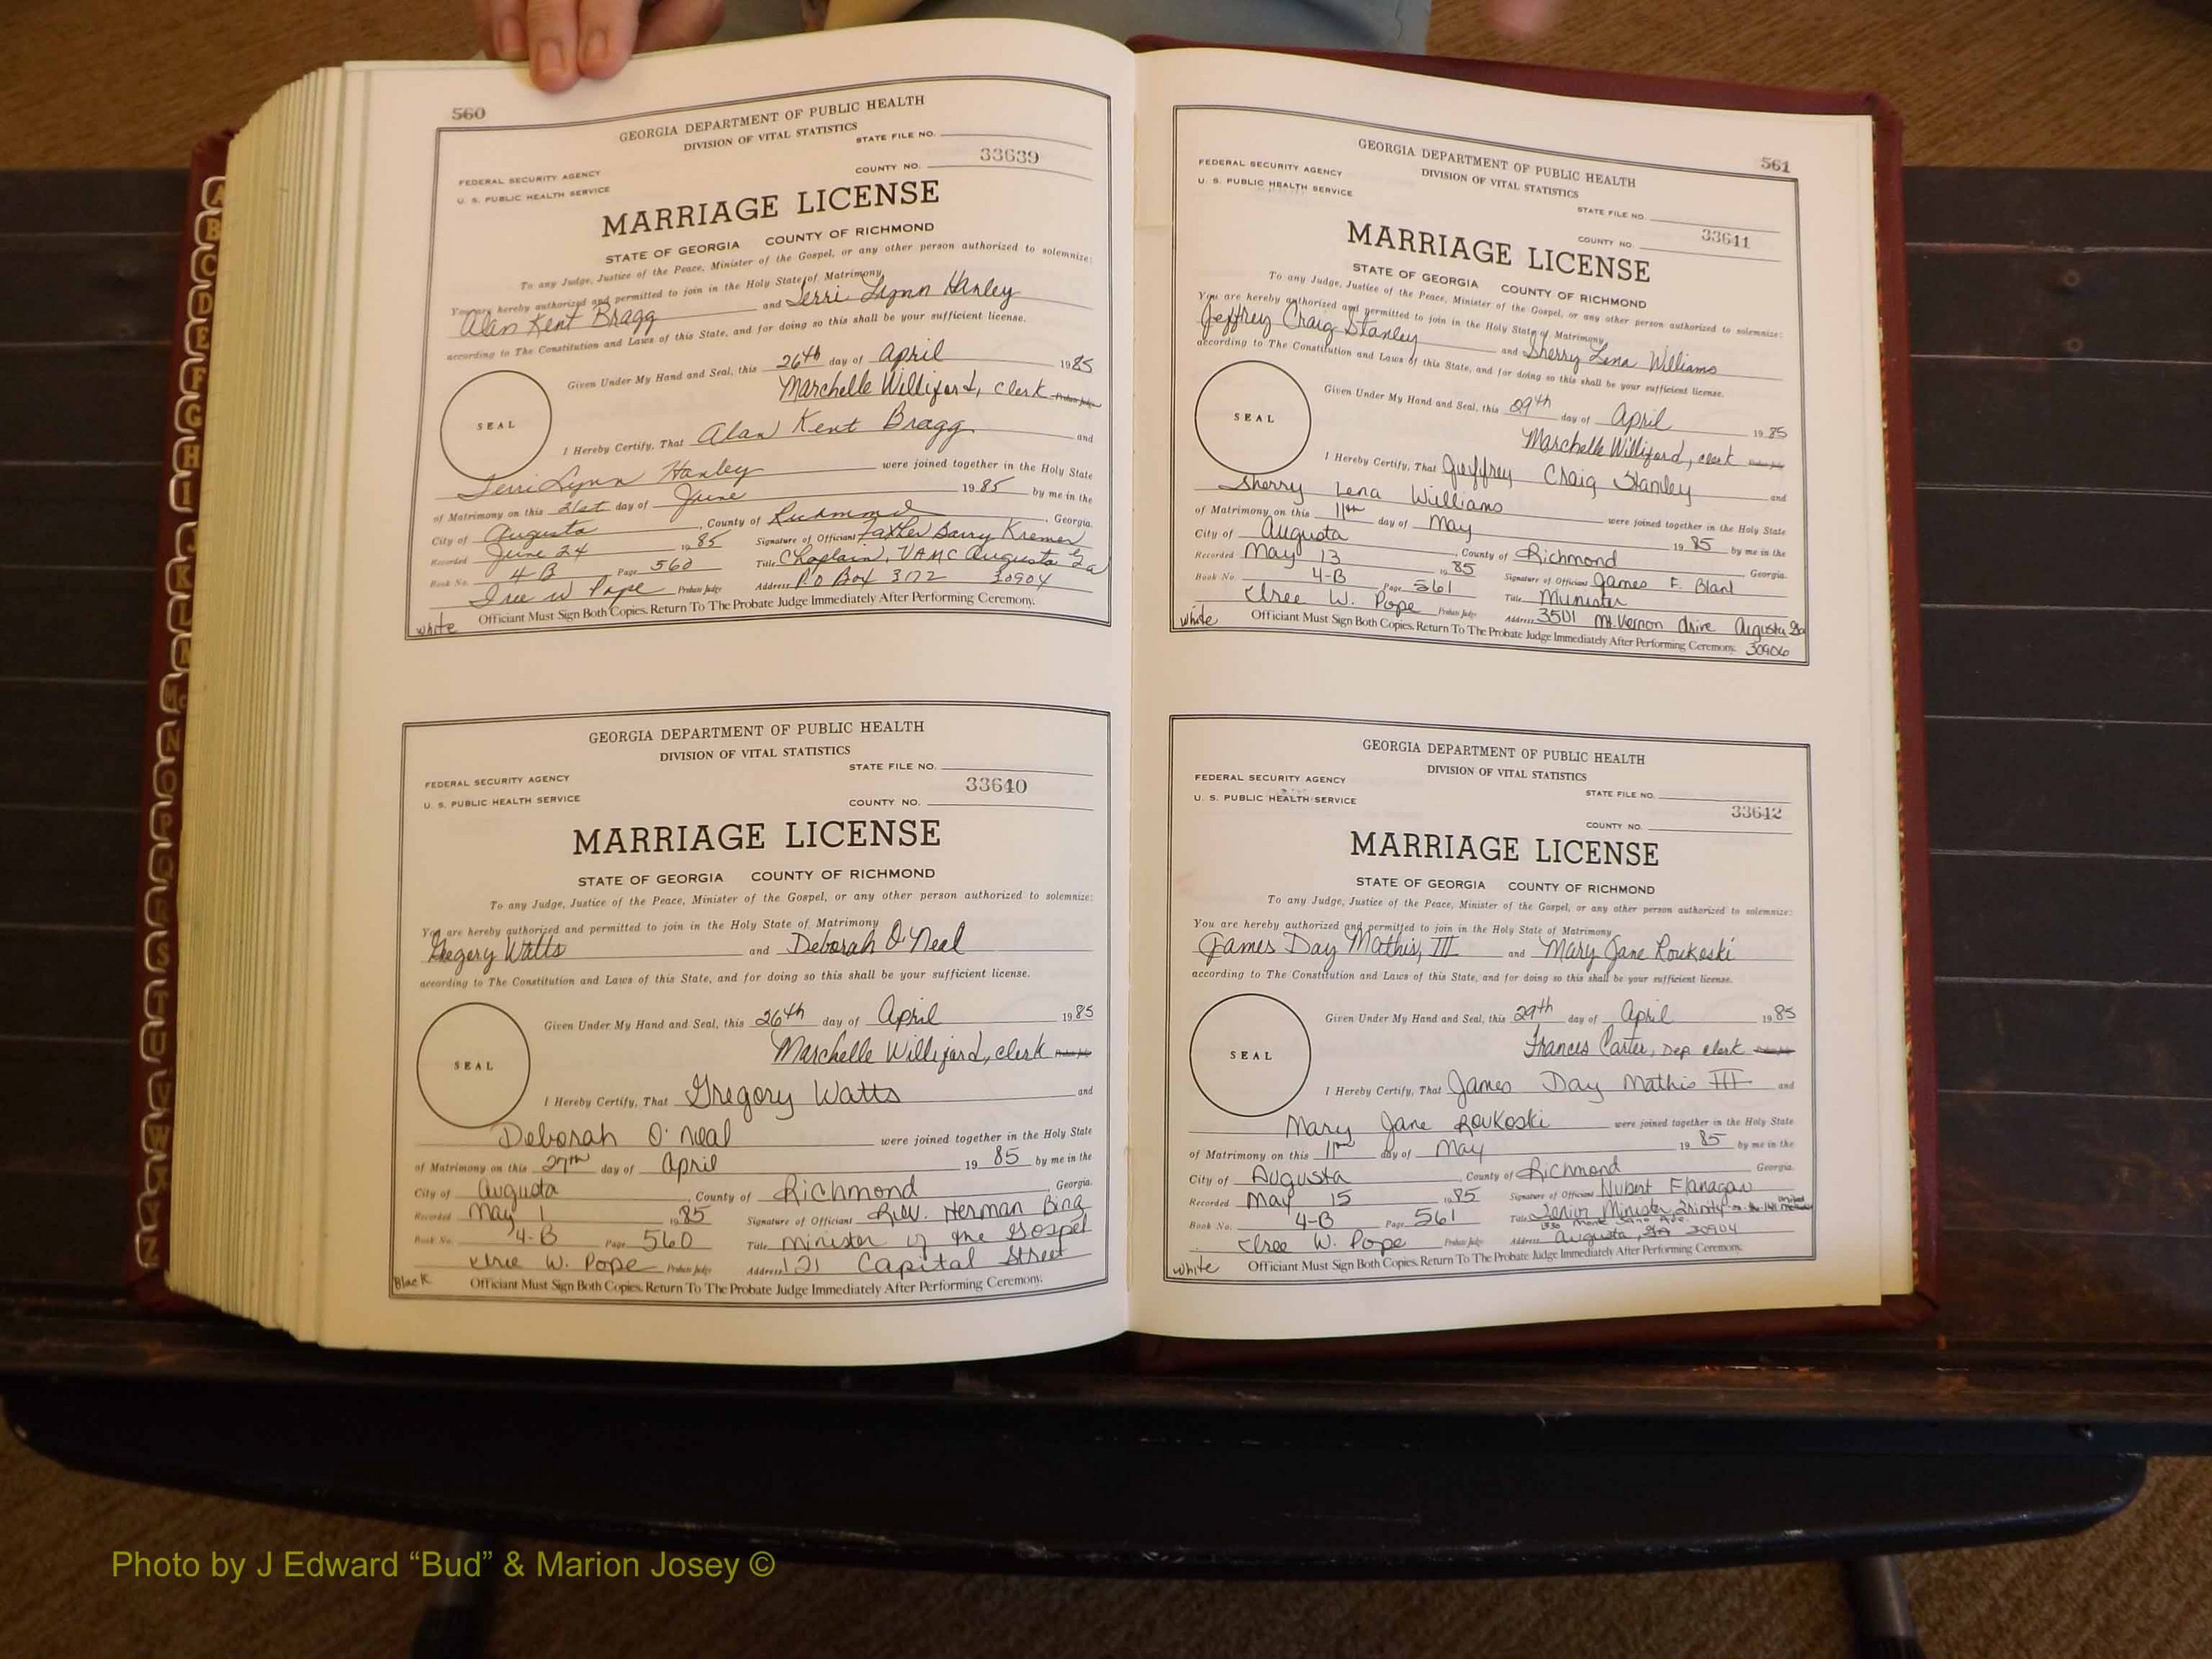 560
GEORGIA DEPARTMENT OF PUBLIC HEALTH
DIVISION OF VITAL STATISTICS
STATE FILE NO.
FEDERAL SECURITY AGENCY
U. S. PUBLIC HEALTH SERVICE
COUNTY NO. 33639
MARRIAGE LICENSE
STATE OF GEORGIA COUNTY OF RICHMOND
To any Judge, Justice of the Peace, Minister of the Gospel, or any other person authorized to solemnize:
You are hereby authorized and permitted to join in the Holy State of Matrimony
Alan Kent Bragg and Terri Lynn Hanley
according to The Constitution and Laws of this State, and for doing so this shall be your sufficient license.
Given Under My Hand and Seal, this 26th day of April 1985
Marchelle Williford, clerk Probate Judge
SEAL
I Hereby Certify, That Alan Kent Bragg and
Terri Lynn Hanley were joined together in the Holy State
of Matrimony on this 21st day of June 1985 by me in the
City of Augusta, County of Richmond, Georgia.
Recorded June 24 1985 Signature of Officiant Father Barry Kremer
Book No. 4-B Page 560 Title Chaplain, VAMC Augusta Ga
Iree W Pope Probate Judge Address P O Box 3172 30904
white Officiant Must Sign Both Copies. Return To The Probate Judge Immediately After Performing Ceremony.
GEORGIA DEPARTMENT OF PUBLIC HEALTH
DIVISION OF VITAL STATISTICS
STATE FILE NO.
FEDERAL SECURITY AGENCY
U. S. PUBLIC HEALTH SERVICE
COUNTY NO. 33640
MARRIAGE LICENSE
STATE OF GEORGIA COUNTY OF RICHMOND
To any Judge, Justice of the Peace, Minister of the Gospel, or any other person authorized to solemnize:
You are hereby authorized and permitted to join in the Holy State of Matrimony
Gregory Watts and Deborah O'Neal
according to The Constitution and Laws of this State, and for doing so this shall be your sufficient license.
Given Under My Hand and Seal, this 26th day of April 1985
Marchelle Williford, clerk Probate Judge
SEAL
I Hereby Certify, That Gregory Watts and
Deborah O'Neal were joined together in the Holy State
of Matrimony on this 27th day of April 1985 by me in the
City of Augusta, County of Richmond, Georgia.
Recorded May 1 1985 Signature of Officiant Rev. Herman Bing
Book No. 4-B Page 560 Title minister of the Gospel
Iree W. Pope Probate Judge Address 121 Capital Street
Black Officiant Must Sign Both Copies. Return To The Probate Judge Immediately After Performing Ceremony.
561
GEORGIA DEPARTMENT OF PUBLIC HEALTH
DIVISION OF VITAL STATISTICS
FEDERAL SECURITY AGENCY
U. S. PUBLIC HEALTH SERVICE
STATE FILE NO.
COUNTY NO. 33641
MARRIAGE LICENSE
STATE OF GEORGIA COUNTY OF RICHMOND
To any Judge, Justice of the Peace, Minister of the Gospel, or any other person authorized to solemnize:
You are hereby authorized and permitted to join in the Holy State of Matrimony
Jeffrey Craig Stanley and Sherry Lena Williams
according to The Constitution and Laws of this State, and for doing so this shall be your sufficient license.
Given Under My Hand and Seal, this 29th day of April 1985
Marchelle Williford, clerk Probate Judge
SEAL
I Hereby Certify, That Jeffrey Craig Stanley and
Sherry Lena Williams were joined together in the Holy State
of Matrimony on this 11th day of May 1985 by me in the
City of Augusta, County of Richmond Georgia.
Recorded May 13 1985 Signature of Officiant James F. Blant
Book No. 4-B Page 561 Title Munister
Iree W. Pope Probate Judge Address 3501 Mt. Vernon drive Augusta Ga
white Officiant Must Sign Both Copies. Return To The Probate Judge Immediately After Performing Ceremony. 30906
GEORGIA DEPARTMENT OF PUBLIC HEALTH
DIVISION OF VITAL STATISTICS
FEDERAL SECURITY AGENCY
U. S. PUBLIC HEALTH SERVICE
STATE FILE NO.
COUNTY NO. 33642
MARRIAGE LICENSE
STATE OF GEORGIA COUNTY OF RICHMOND
To any Judge, Justice of the Peace, Minister of the Gospel, or any other person authorized to solemnize:
You are hereby authorized and permitted to join in the Holy State of Matrimony
James Day Mathis, III and Mary Jane Roukoski
according to The Constitution and Laws of this State, and for doing so this shall be your sufficient license.
Given Under My Hand and Seal, this 29th day of April 1985
Frances Carter, Dep clerk
SEAL
I Hereby Certify, That James Day Mathis III and
Mary Jane Roukoski were joined together in the Holy State
of Matrimony on this 11th day of May 1985 by me in the
City of Augusta, County of Richmond Georgia.
Recorded May 15 1985 Signature of Officiant Hubert Flanagan
Book No. 4-B Page 561 Title Senior Minister, Trinity-on-the-Hill United
Iree W. Pope Probate Judge Address Augusta, GA 30904
white Officiant Must Sign Both Copies. Return To The Probate Judge Immediately After Performing Ceremony.
Photo by J Edward “Bud” & Marion Josey ©